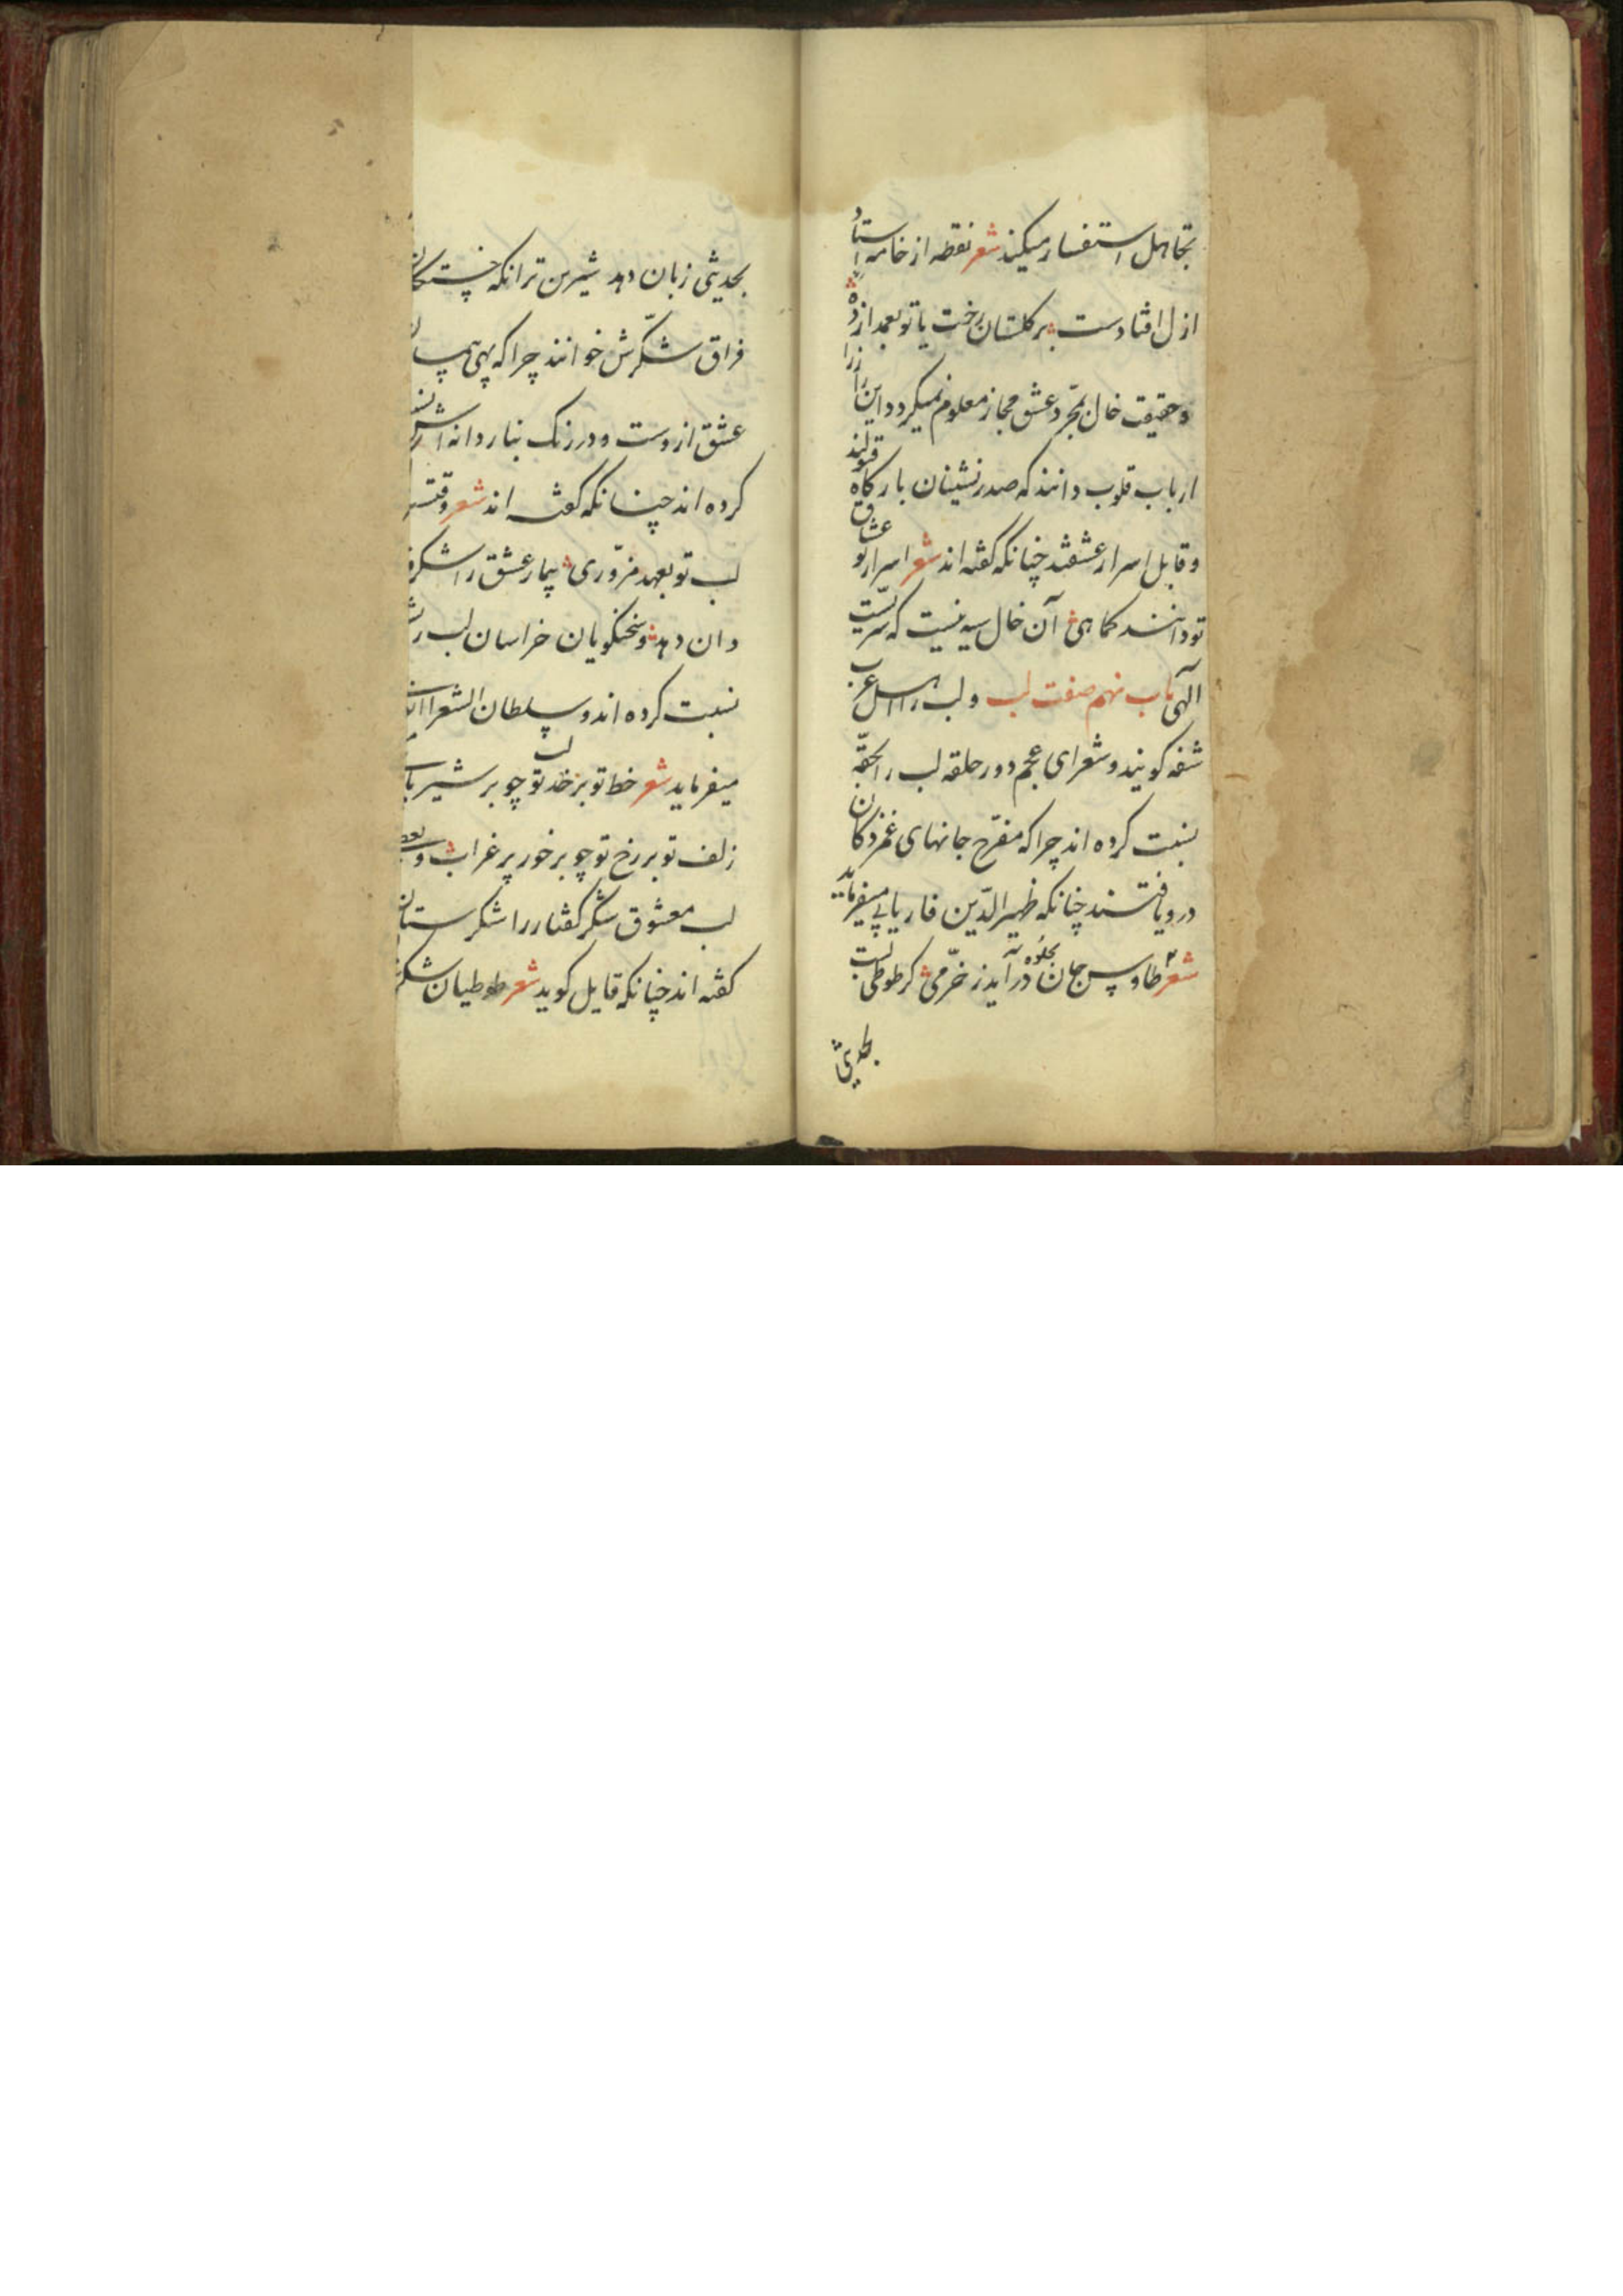 تجاهل استفسار میکند شعر نقطه از خامه استاد
ازل افتادست بر گلستان رخت یا تو بعمدا زده
و حقیقت خال بمجرد عشق مجاز معلوم نمیگردد این را
ارباب قلوب دانند که صدرنشینان بارگاه قبولند
و قابل اسرار عشقند چنانکه گفته اند شعر اسرار تو عشاق
تو دانند کماهی آن خال سیه نیست که سریست
الهی باب نهم صفت لب و لب را اهل عرب
شفه گویند و شعرای عجم دور حلقه لب را بحقه
نسبت کرده اند چرا که مفرح جانهای غمزدگان
درو یافتند چنانکه ظهیرالدین فاریابی میفرماید
شعر طاوس جان بجلوه درآید ز خرمی گر طوطی لبت
بحدیثی
بحدیثی زبان دهد شیرین تر انکه خستگان
فراق شکرش خوانند چرا که بهی
عشق ازوست و در رنگ بناردانه اش
کرده اند چنانکه گفته اند شعر وقتست
لب تو بعهد مزوری بیمار عشق را شکر
دان دهد و سخنگویان خراسان لب را
نسبت کرده اند و سلطان الشعرا
میفرماید شعر خط تو بر خد تو چو بر شیر
زلف تو بر رخ تو چو بر خور پر غراب و بعضی
لب معشوق شکر گفتار را شکرستان
گفته اند چنانکه قایل گوید شعر طوطیان